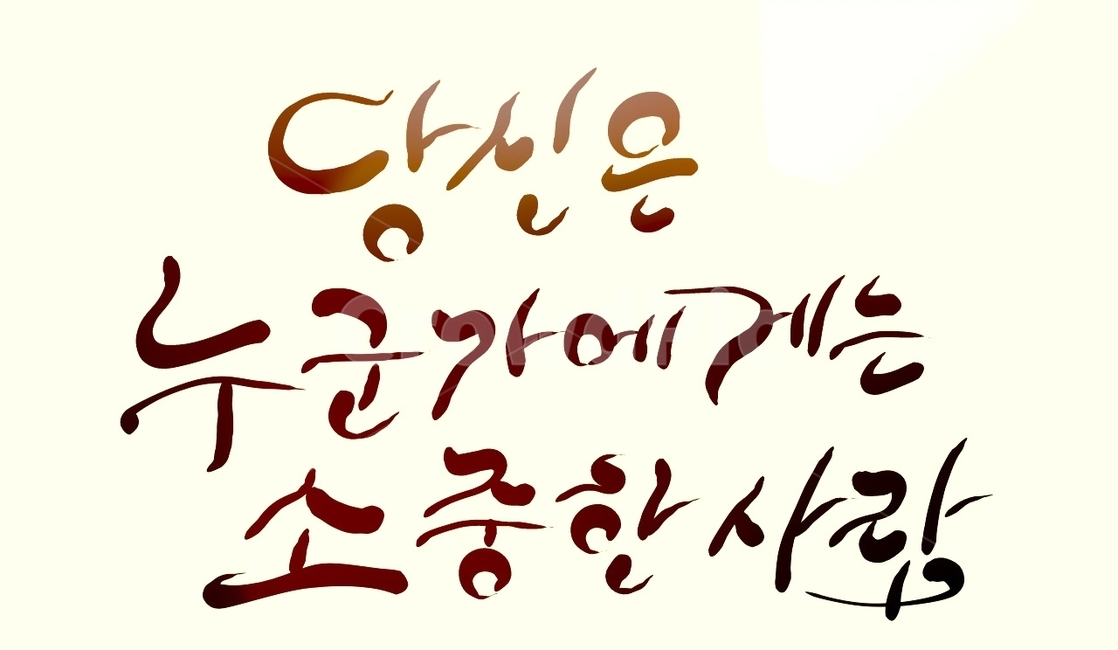 당신은
누군가에게는
소중한 사람